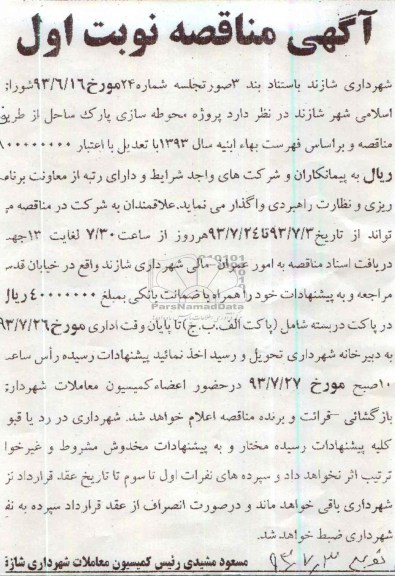 آگهی مناقصه نوبت اول
شهرداری شازند باستناد بند ۳صورتجلسه شماره۲۴مورخ۹۳/۶/۱۶شورای
اسلامی شهر شازند در نظر دارد پروژه محوطه سازی پارک ساحل از طریق
مناقصه و براساس فهرست بهاء ابنیه سال ۱۳۹۳با تعدیل با اعتبار
ریال به پیمانکاران و شرکت های واجد شرایط و دارای رتبه از معاونت برنامه
ریزی و نظارت راهبردی واگذار می نماید.علاقمندان به شرکت در مناقصه می
تواند از تاریخ۹۳/۷/۳تا۹۳/۷/۲۴هرروز از ساعت۷/۳۰ لغایت ۱۳جهت
دریافت اسناد مناقصه به امور عمران-مالی شهرداری شازند واقع در خیابان قدس
مراجعه و به پیشنهادات خود را همراه با ضمانت بانکی بمبلغ ۴۰۰۰۰۰۰۰ ریال
در پاکت دربسته شامل (پاکت الف.ب.ج) تا پایان وقت اداری مورخ۹۳/۷/۲۶
به دبیرخانه شهرداری تحویل و رسید اخذ نمائید پیشنهادات رسیده رأس ساعت
۱۰صبح مورخ ۹۳/۷/۲۷ درحضور اعضاء کمیسیون معاملات شهرداری
بازگشائی -قرائت و برنده مناقصه اعلام خواهد شد. شهرداری در رد یا قبول
کلیه پیشنهادات رسیده مختار و به پیشنهادات مخدوش مشروط و غیرخوانا
ترتیب اثر نخواهد داد و سپرده های نفرات اول تا سوم تا تاریخ عقد قرارداد نزد
شهرداری باقی خواهد ماند و درصورت انصراف از عقد قرارداد سپرده به نفع
شهرداری ضبط خواهد شد.
مسعود مشیدی رئیس کمیسیون معاملات شهرداری شازند
۹۳/۷/۳
ParsNamadData